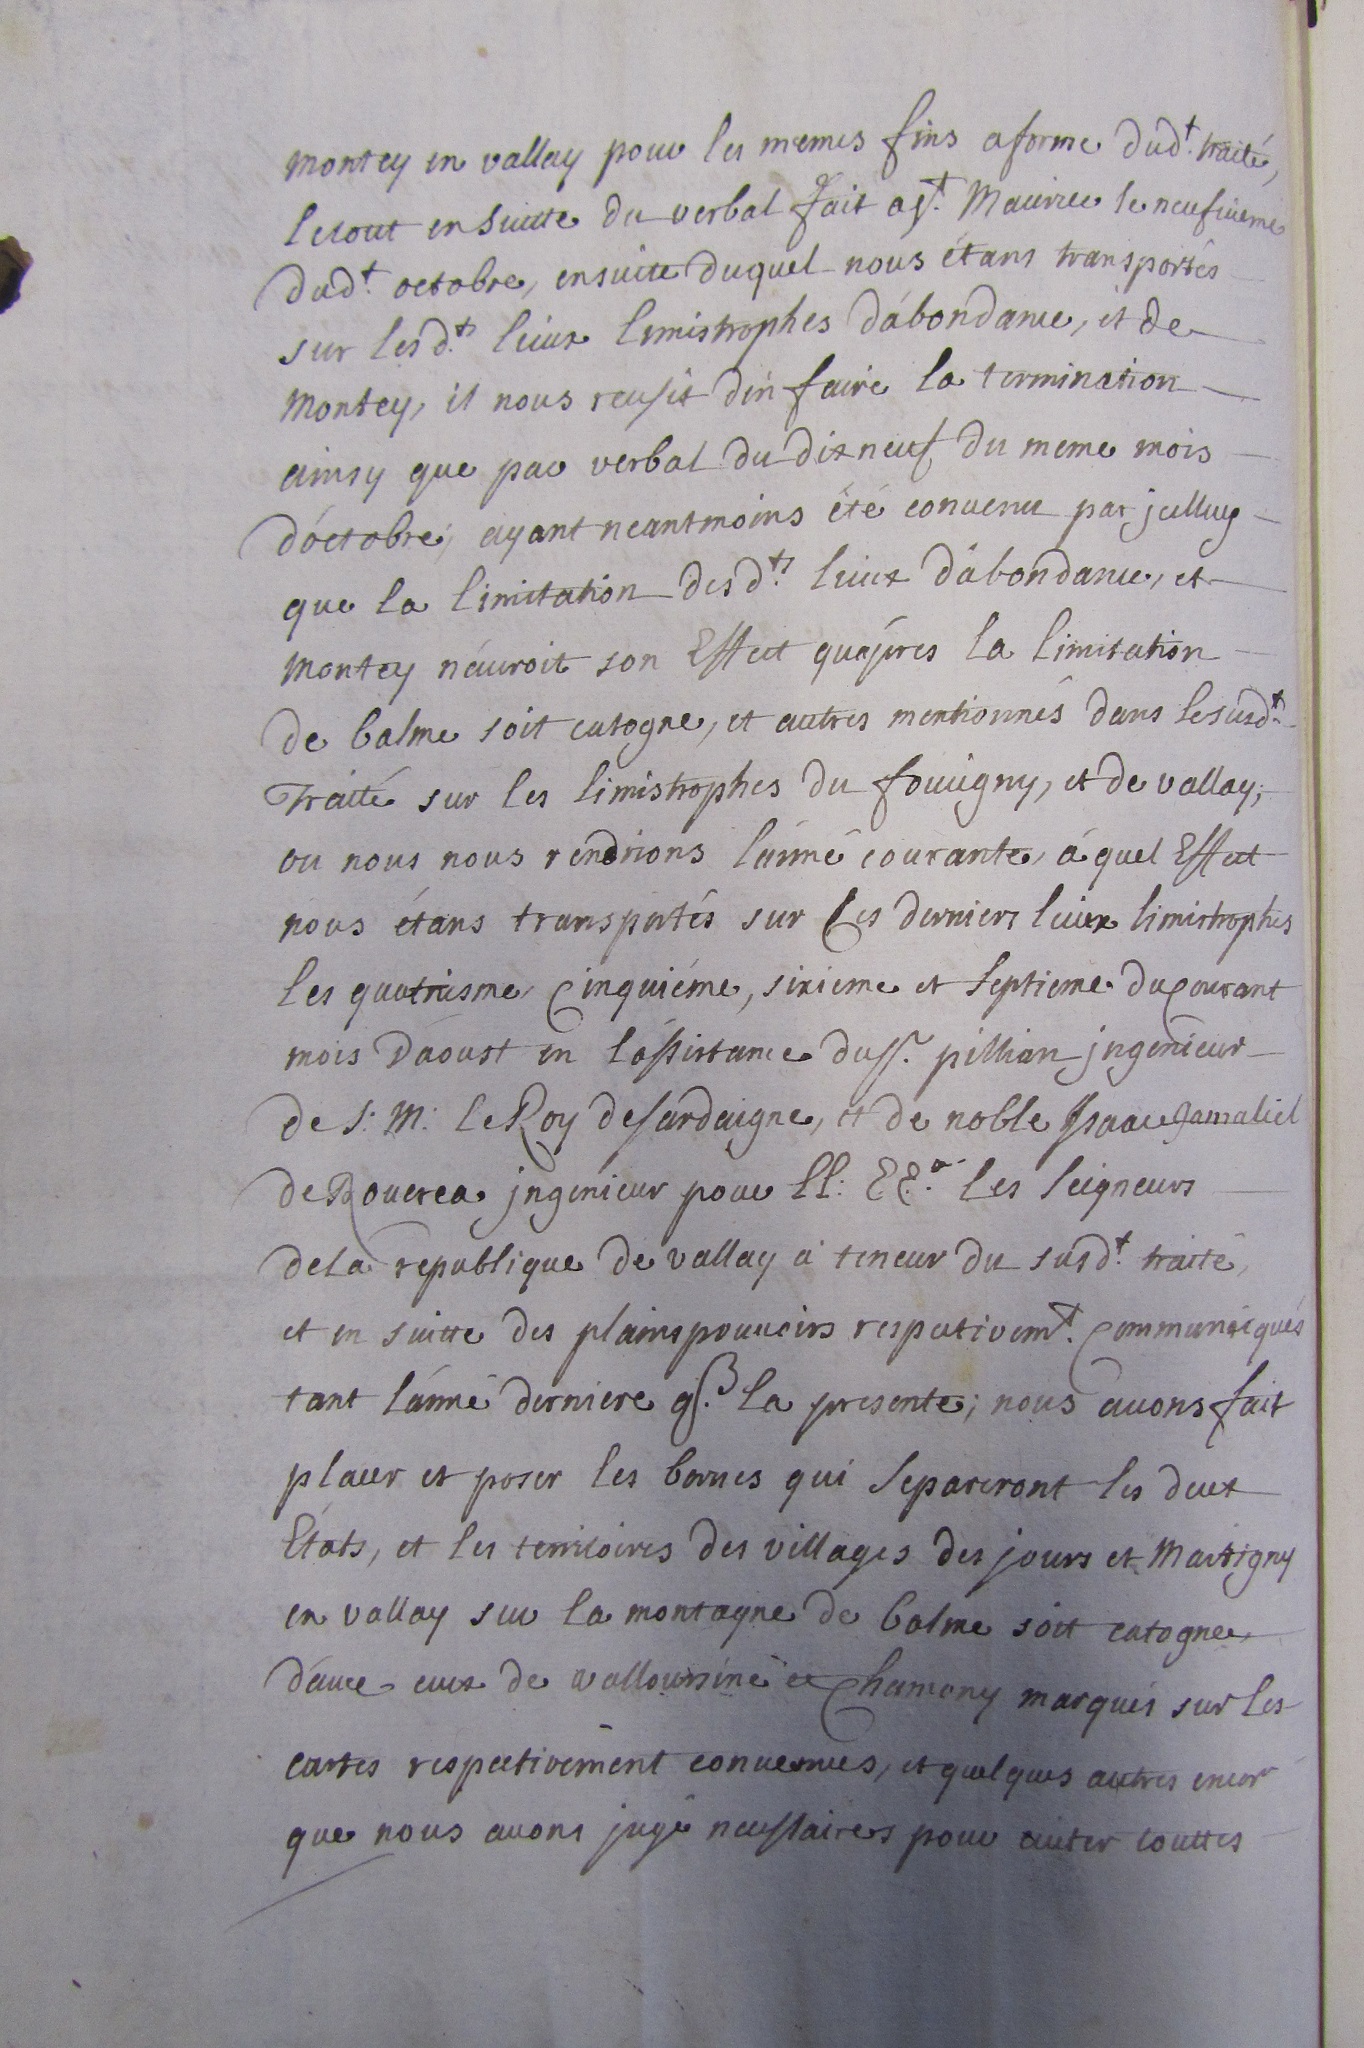 montey en vallay pour les memes fins a forme dud.t traité,
le tout en suitte du verbal fait a s.t Maurice le neufiueme
dud.t octobre, ensuitte duquel nous étans transportés
sur les d.ts lieux limistrophes d'abondance, et de
montey, il nous reusit d'en faire la termination
ainsy que par verbal du dixneuf du meme mois
d'octobre, ayant neantmoins été conuenu par jcelluy
que la limitation des d.ts lieux d'abondance, et
montey n'auroit son Effect qu'apres la limitation
de balme soit catogne, et autres mentionnés dans le susd.t
Traitté sur les limistrophes du foucigny, et de vallay;
ou nous nous rendrions l'année courante, á quel Effect
nous étans transportés sur Ces derniers lieux limistrophes
les quatriesme, Cinquiéme, sixieme et septieme du Courant
mois d'aoust en l'assistance du s.r pillian jngenieur
de S: M: le Roy de Sardaigne, et de noble Isaac Gamaliel
de Rouerea jngenieur pour LL: EE. les seigneurs
de La republique de vallay a teneur du susd.t traité,
et en suitte des plains pouuoirs respectivem.t Communiqués
tant l'année derniere q. la presente; nous auons fait
placer et poser les bornes qui separeront les deux
États, et les territoires des villages des jours et Martigny
en vallay sur la montagne de balme soit catogne,
d'auec eux de valloursine et Chamony marqués sur les
cartes respectivement conuenues, et quelques autres encor
que nous auons jugé necessaires pour euiter touttes